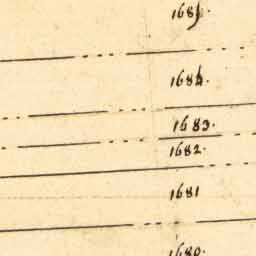 1685.
1684.
1683.
1682.
1681
1680.